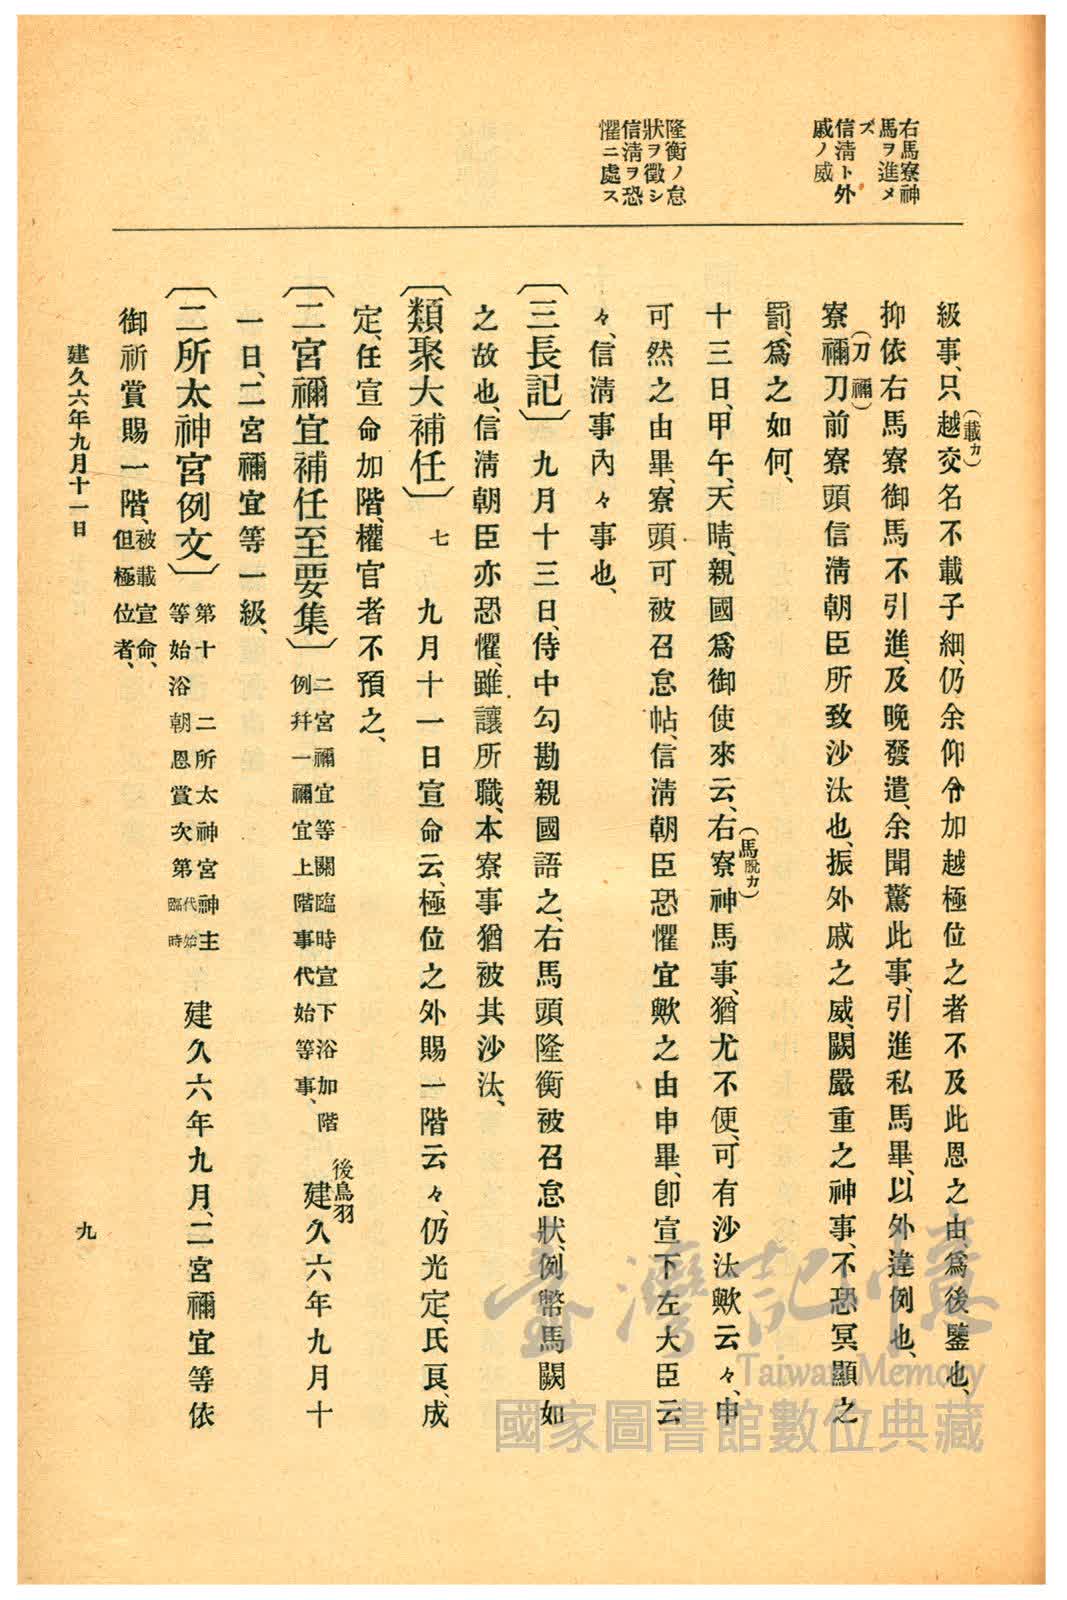 右馬寮神
馬ヲ進メ
ズ
信淸ト外
戚ノ威
隆衡ノ怠
狀ヲ徵シ
信淸ヲ恐
懼ニ處ス
級事、只越交名不載子細、仍余仰令加越極位之者不及此恩之由爲後鑒也、
(載カ)
抑依右馬寮御馬不引進、及晩發遣、余聞驚此事、引進私馬畢、以外違例也、
(刀禰)
寮禰刀前寮頭信淸朝臣所致沙汰也、振外戚之威、闕嚴重之神事、不恐冥顯之
罰、爲之如何、
十三日、甲午、天晴、親國爲御使來云、右寮神馬事、猶尤不便、可有沙汰歟云々、申
(馬脫カ)
可然之由畢、寮頭可被召怠帖、信淸朝臣恐懼宜歟之由申畢、卽宣下左大臣云
々、信淸事內々事也、
〔三長記〕 九月十三日、侍中勾勘親國語之、右馬頭隆衡被召怠狀、例幣馬闕如
之故也、信淸朝臣亦恐懼、雖讓所職、本寮事猶被其沙汰、
〔類聚大補任〕 七 九月十一日宣命云、極位之外賜一階云々、仍光定、氏良、成
定、任宣命加階、權官者不預之、
〔二宮禰宜補任至要集〕 二宮禰宜等關臨時宣下浴加階
例幷一禰宜上階事代始等事、
後鳥羽
建久六年九月十
一日、二宮禰宜等一級、
〔二所太神宮例文〕 第十二所太神宮神主
等始浴朝恩賞次第 代始
臨時
建久六年九月、二宮禰宜等依
御祈賞賜一階、被載宣命、
但極位者、
建久六年九月十一日
九
臺灣記憶
Taiwan Memory
國家圖書館數位典藏